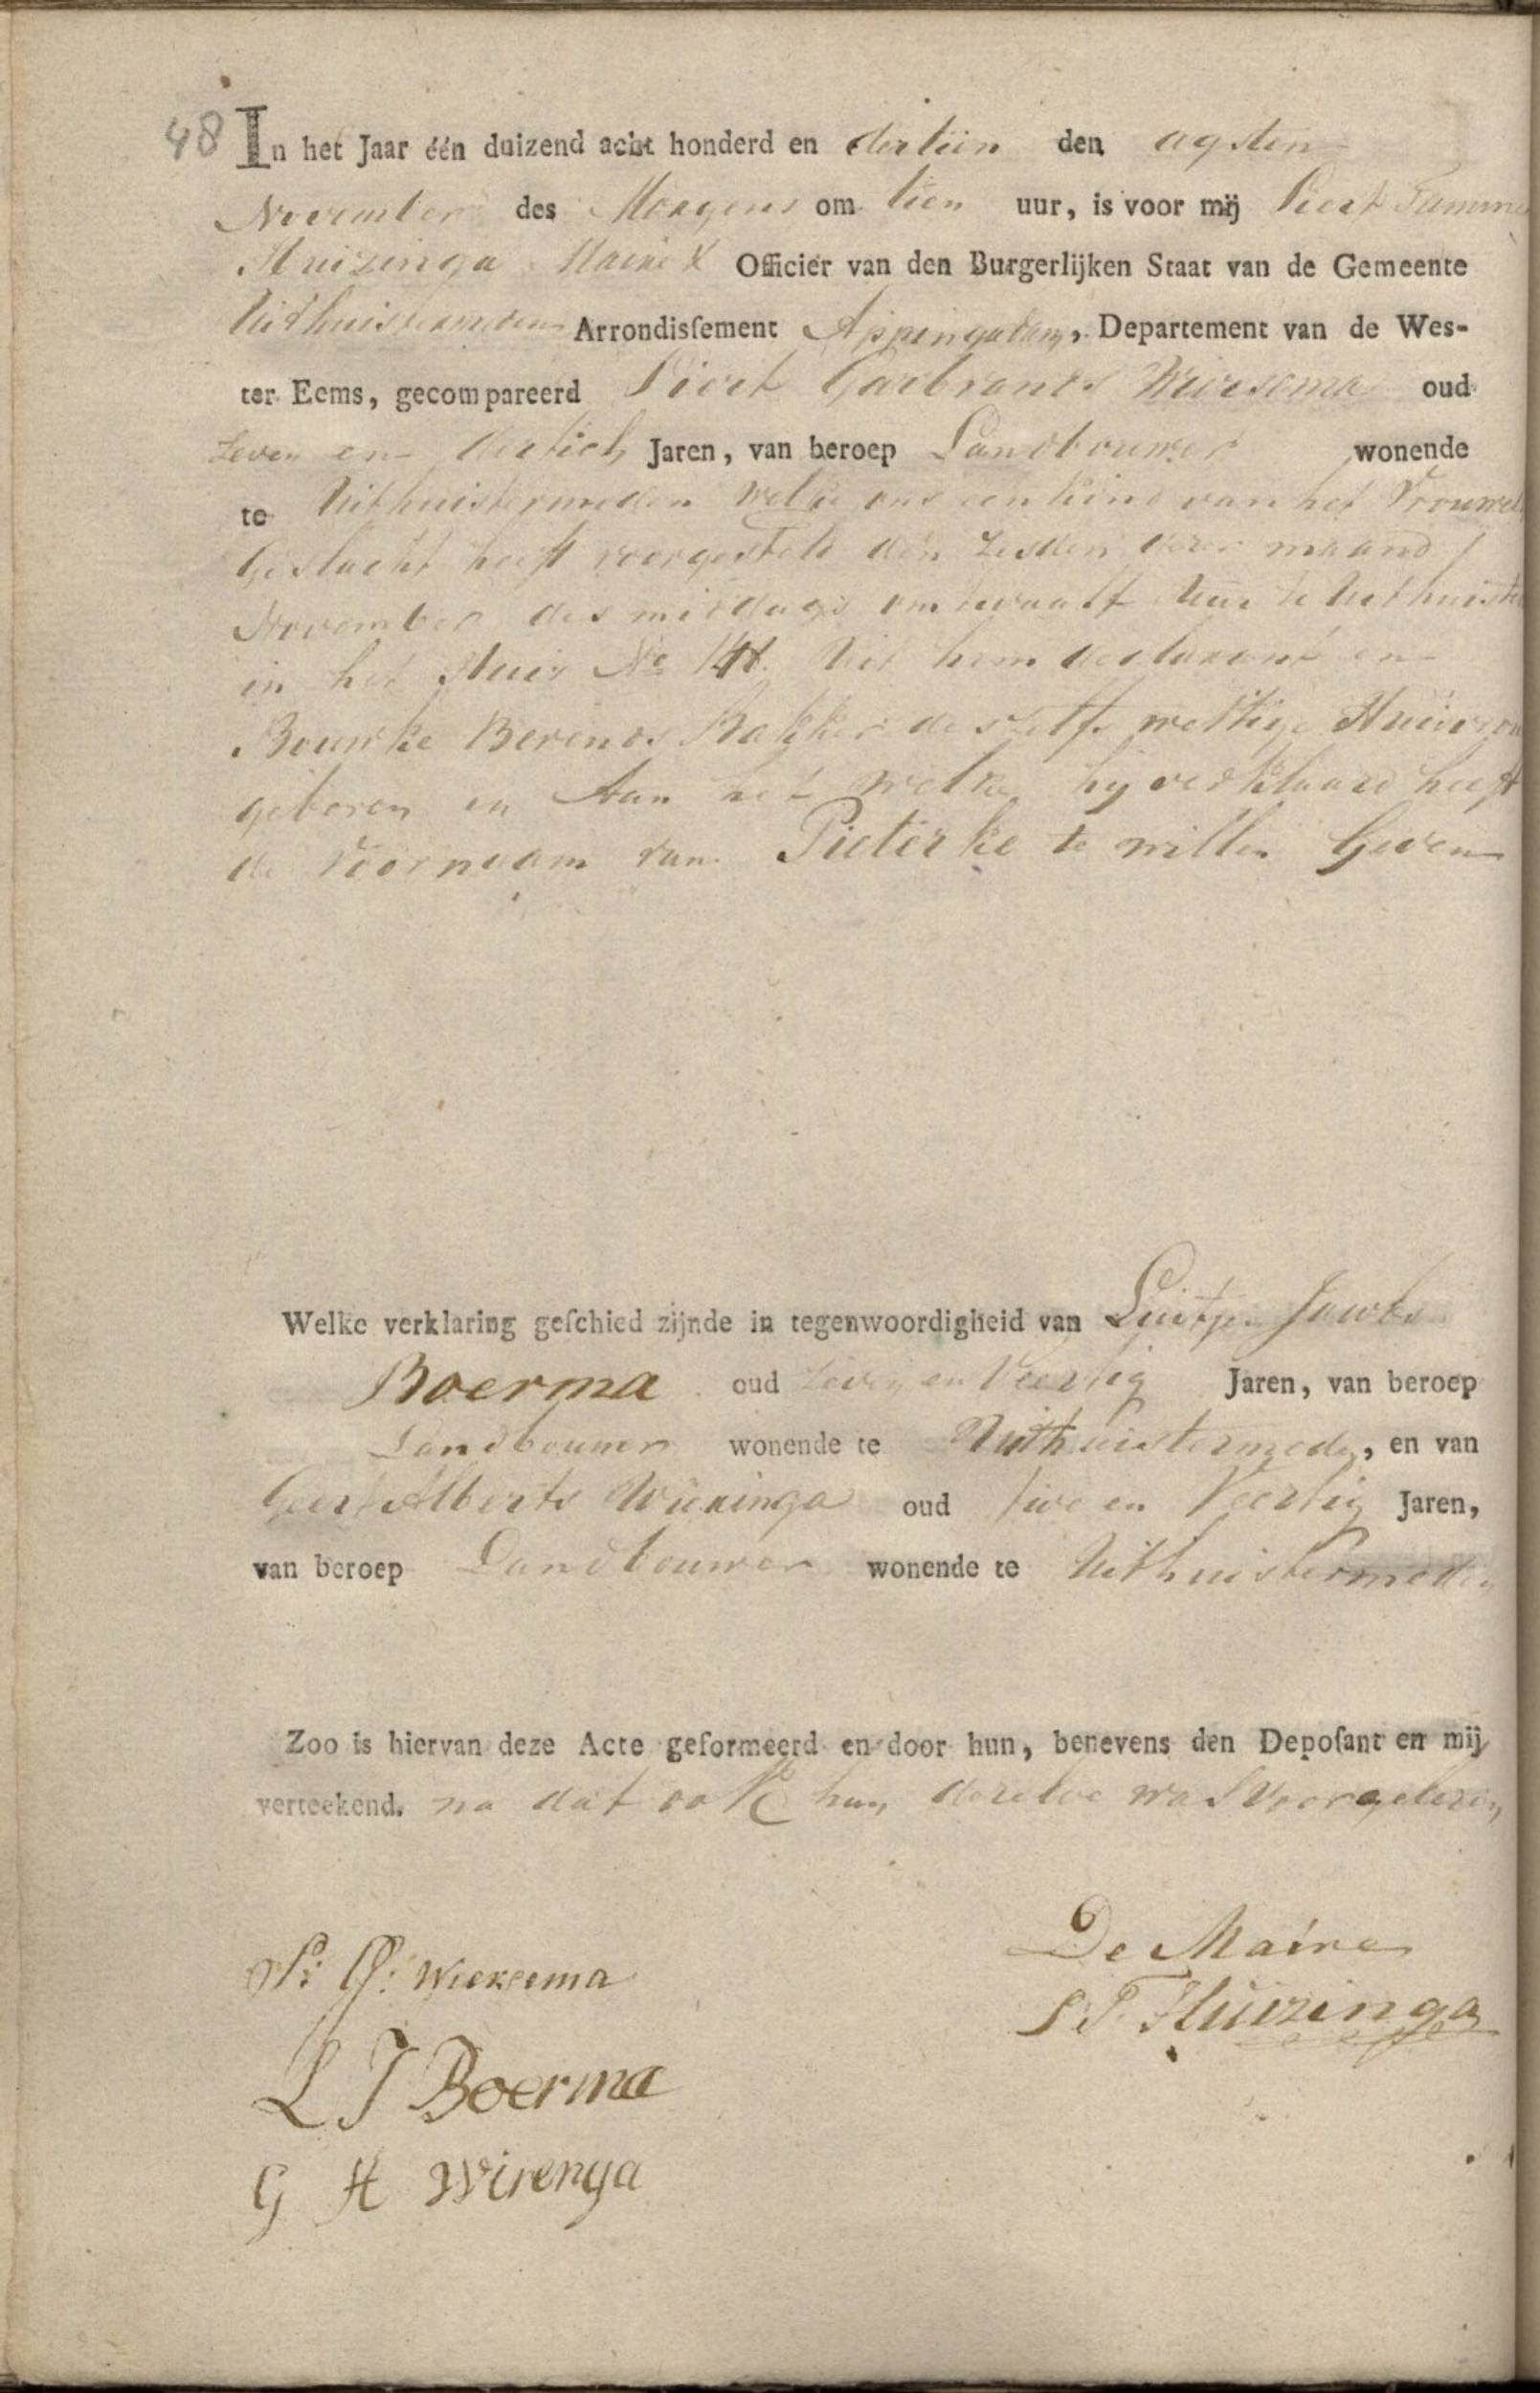 48 In het Jaar één duizend acht honderd en dertien den agsten
November des Morgens om tien uur, is voor mij Pieter
Huizinga Maire Officier van den Burgerlijken Staat van de Gemeente
Uithuistermeden Arrondisſement Appingadam, Departement van de Wes-
ter Eems, gecompareerd Pieter Garbrands Wiersema oud
Zeven en dertich Jaren, van beroep Landbouwer wonende
te Uithuistermeden welke ons een kind van het Vrouwel
Geslacht heeft voorgesteld den Zesden dezer maand
November des middags om twaalf Uur te Uithuister
in het Huis No Uit hem declarant en
Bouwke Berends Bakker deszelfs wettige Huisvrou
geboren en Aan het welke hij verklaard heeft
de Voornaam van Pieterke te willen Geven
Welke verklaring geſchied zijnde in tegenwoordigheid van Luitje Jacobs
Boerma oud Zeven en Veertig Jaren, van beroep
Landbouwer wonende te Uithuistermeden, en van
Geert Alberts Wierenga oud Twe en Veertig Jaren,
van beroep Landbouwer wonende te Uithuistermeden
Zoo is hiervan deze Acte geformeerd en door hun, benevens den Depoſant en mij
verteekend. na dat ook hun dezelve was Voorgelezen
De Maire
P: G: Wiersema
P T Huizinga
L J Boerma
G A Wirenga